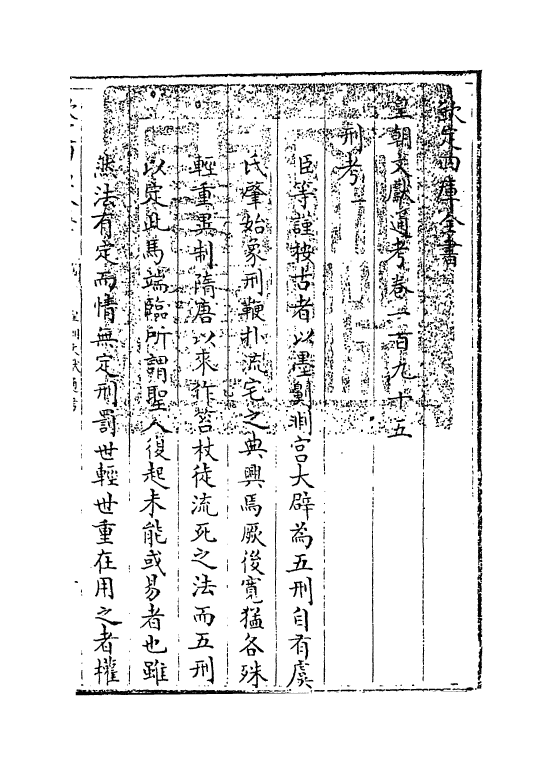 欽定四庫全書
皇朝文獻通考卷一百九十五
刑考一
臣等謹按古者以墨劓剕宮大辟為五刑自有虞
氏肇始象刑鞭扑流宅之典興焉厥後寛猛各殊
輕重異制隋唐以來作笞杖徒流死之法而五刑
以定此馬端臨所謂聖人復起未能或易者也雖
然法有定而情無定刑罰世輕世重在用之者權